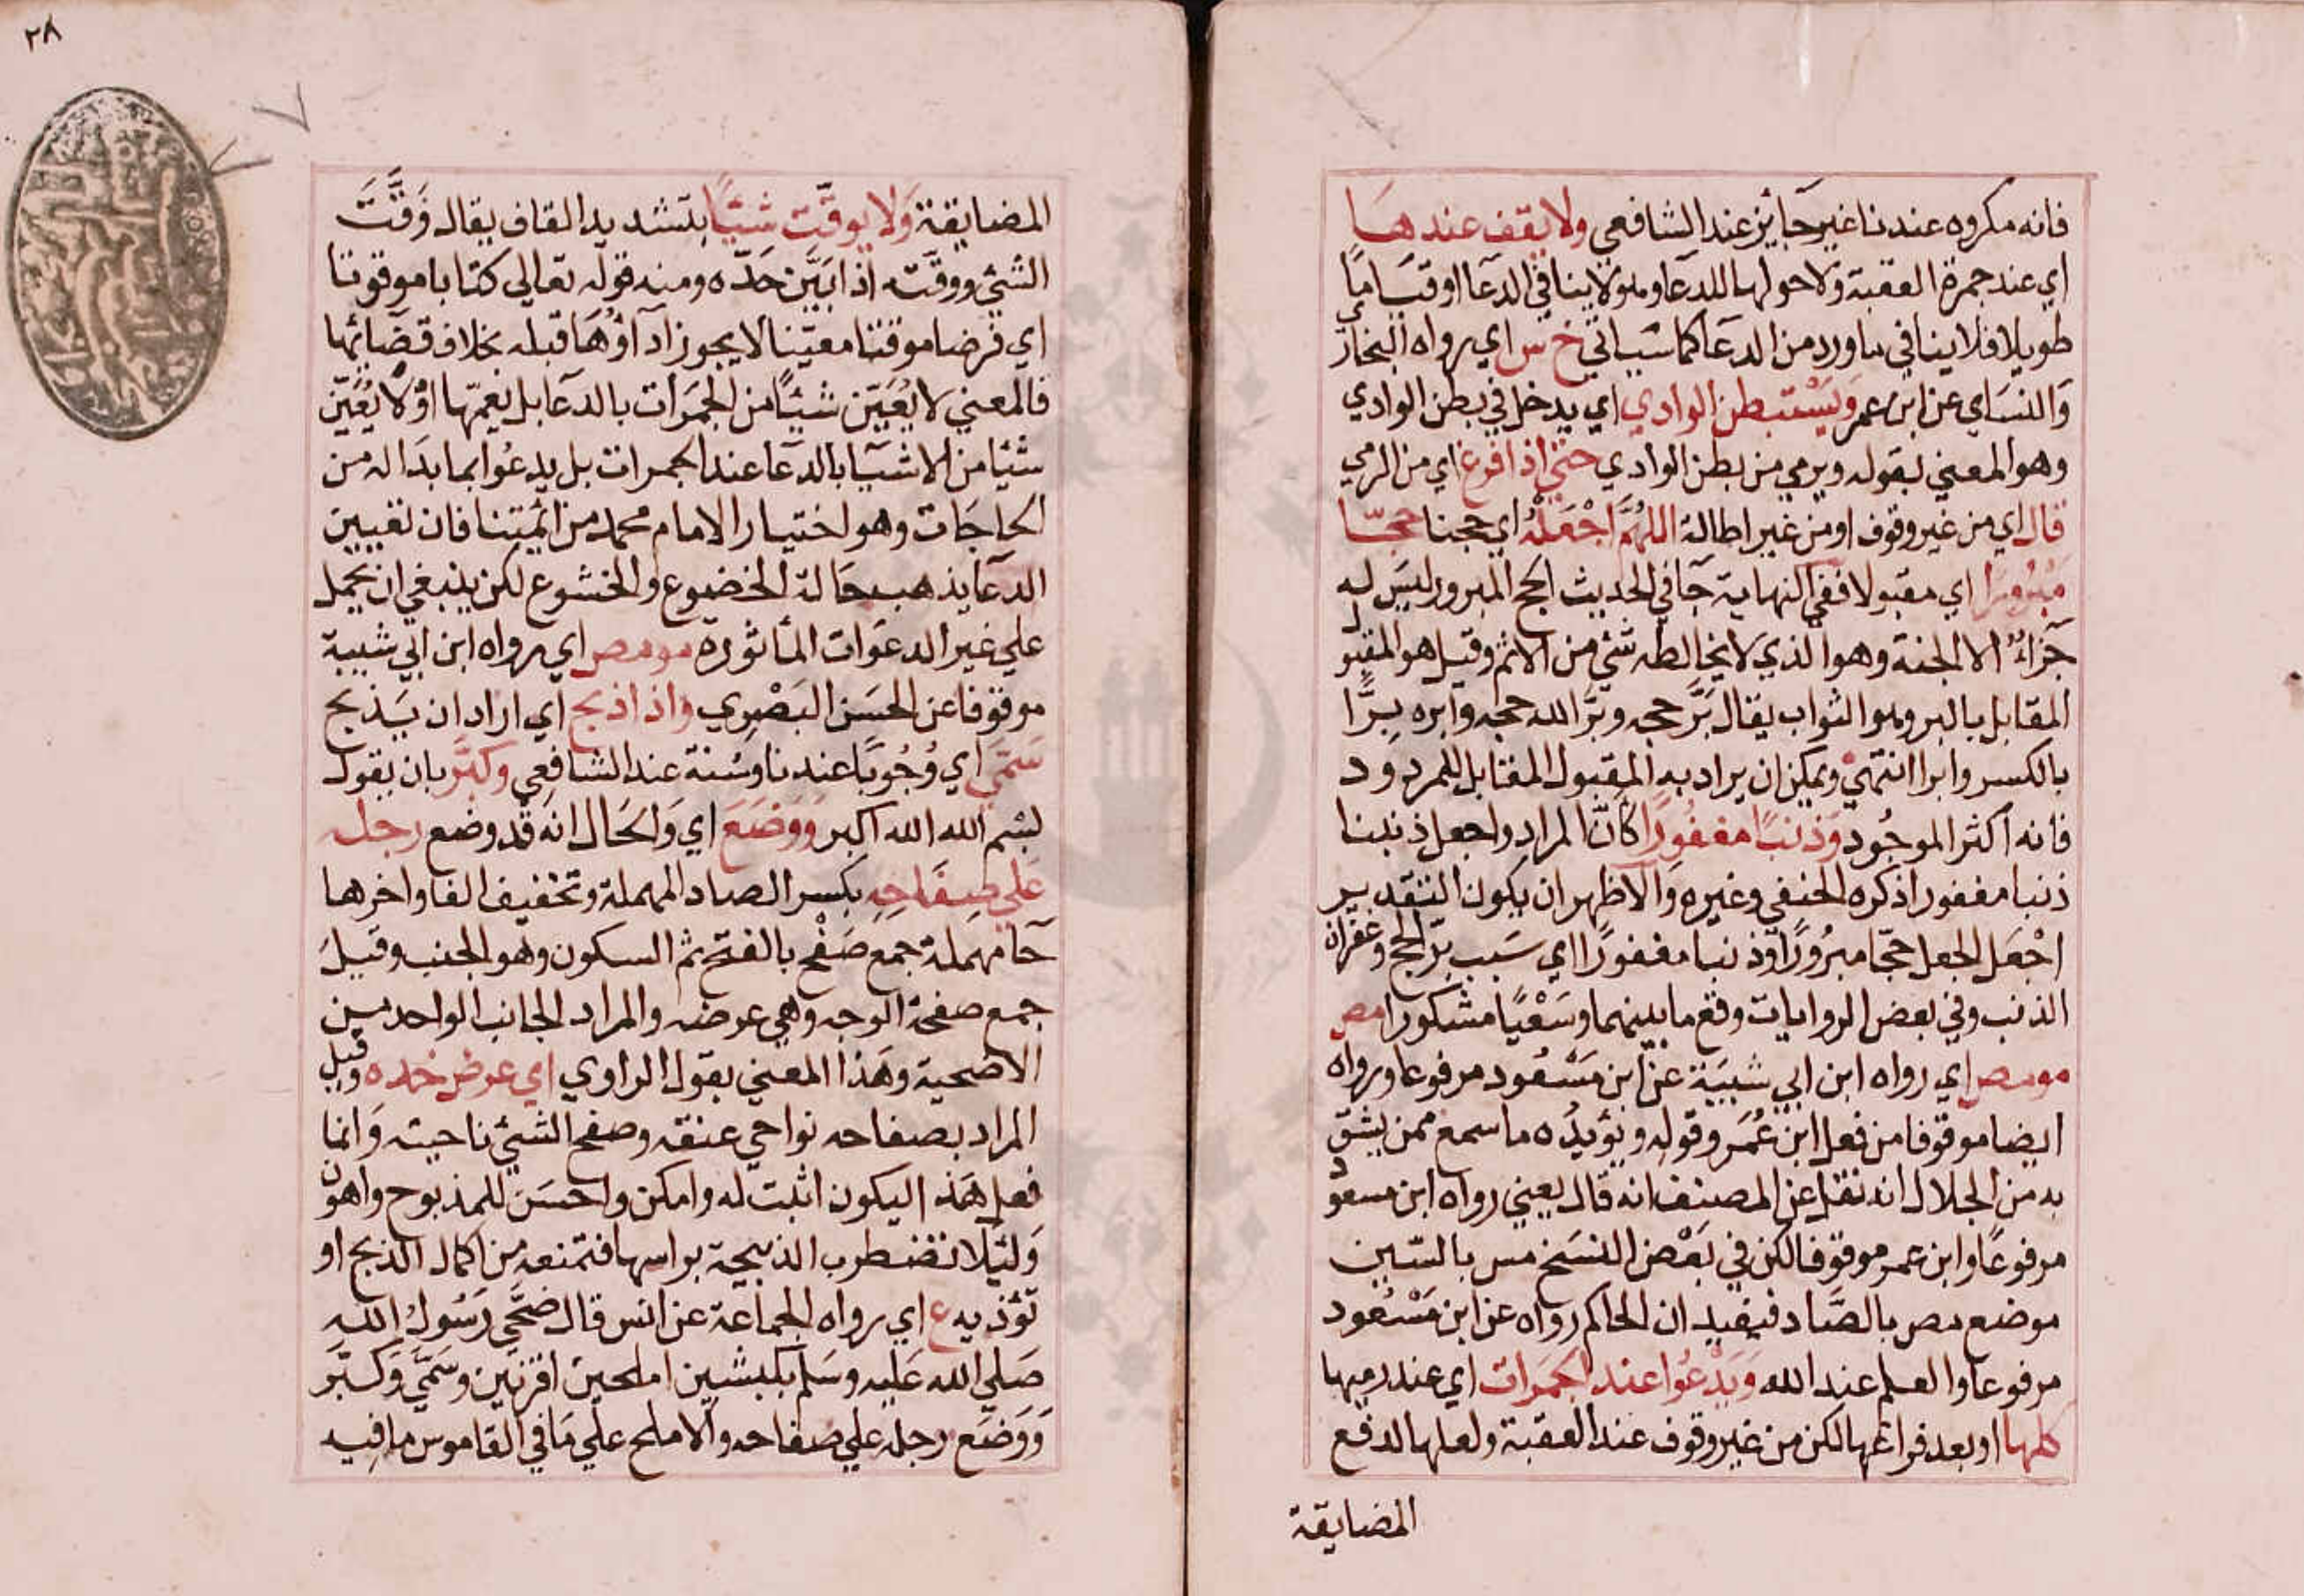 فانه مكروه عندنا غير جآئز عند الشافعي ولا يقف عندها
اي عند جمرة العقبة ولا حولها للدعآ وهو لا ينافي الدعآ او قياما
طويلا فلا ينافي ما ورد من الدعآ كما سياتي خ س اي رواه البخار
والنسائي عن ابن عمر ويستبطن الوادي اي يدخل في بطن الوادي
وهو المعني بقوله ويرمي من بطن الوادي حتي اذا فرغ اي من الرمي
قال اي من غير وقوف او من غير اطالة اللهم اجعله اي حجنا حجا
مبرورا اي مقبولا ففي النهاية جآ في الحديث الحج المبرور ليس له
جزآء الا الجنة وهو الذي لا يخالطه شئ من الاثم وقيل هو المقبول
المقابل بالبر وهو الثواب يقال برّ حجه وبرّ الله حجه وابره برّا
بالكسر وابرا انتهي ويمكن ان يراد به المقبول المقابل للمردود
فانه اكثر الموجود وذنبا مغفورا كانّ المراد واجعل ذنبنا
ذنبا مغفورا ذكره الحنفي وغيره والاظهر ان يكون التقدير
اجعل الجعل حجّا مبرورا وذنبا مغفورا اي سبب برّ الحج وغفران
الذنب وفي بعض الروايات وقع ما بينهما وسعيا مشكورا مص
مومص اي رواه ابن ابي شيبة عن ابن مسعود مرفوعا ورواه
ايضا موقوفا من فعل ابن عمر وقوله ويؤيده ما سمع ممن يثق
به من الجلال انه نقل عن المصنف انه قال يعني رواه ابن مسعود
مرفوعا وابن عمر موقوفا لكن في بعض النسخ مس بالسين
موضع مص بالصاد فيفيد ان الحاكم رواه عن ابن مسعود
مرفوعا والعلم عند الله ويدعوا عند الجمرات اي عند رميها
كلها او بعد فراغها لكن من غير وقوف عند العقبة ولعلها لدفع
المضايقة
٢٨
المضايقة ولا يوقّت شيئا بتشديد القاف يقال وَقَّتَ
الشئ ووقّته اذا بيّن حدّه ومنه قوله تعالي كتابا موقوتا
اي فرضا موقتا معيّنا لا يجوز آدآؤها قبله بخلاف قضآئها
فالمعني لا يعيّن شيئا من الجمرات بالدعآ بل يعمّها او لا يعيّن
شئيا من الاشيآ بالدعآ عند الجمرات بل يدعوا بما بدا له من
الحاجات وهو اختيار الامام محمد من ائمتنا فان تعيين
الدعآ يذهب حالة الخضوع والخشوع لكن ينبغي ان يحمل
علي غير الدعوات المأثوره مومص اي رواه ابن ابي شيبة
موقوفا عن الحسن البصري واذا ذبح اي اراد ان يذبح
سمّي اي وجوبا عندنا وسنة عند الشافعي وكبّر بان يقول
بسم الله الله اكبر ووضع اي والحال انه قد وضع رجله
علي صفاحه بكسر الصاد المهملة وتخفيف الفا واخرها
حا مهملة جمع صفح بالفتح ثم السكون وهو الجنب وقيل
جمع صفحة الوجه وهي عرضه والمراد الجانب الواحد من
الاضحية وهذا المعني بقول الراوي اي عرض خده وقيل
المراد بصفاحه نواحي عنقه وصفح الشئ ناحيته وانما
فعل هذا ليكون اثبت له وامكن واحسن للمذبوح واهون
ولئلا تضطرب الذبيحة براسها فتمنعه من اكمال الذبح او
تؤذيه ع اي رواه الجماعة عن انس قال ضحّي رسول الله
صلي الله عليه وسلم بكبشين املحين اقرنين وسمّي وكبّر
ووضع رجله علي صفاحه والاملح علي ما في القاموس ما فيه